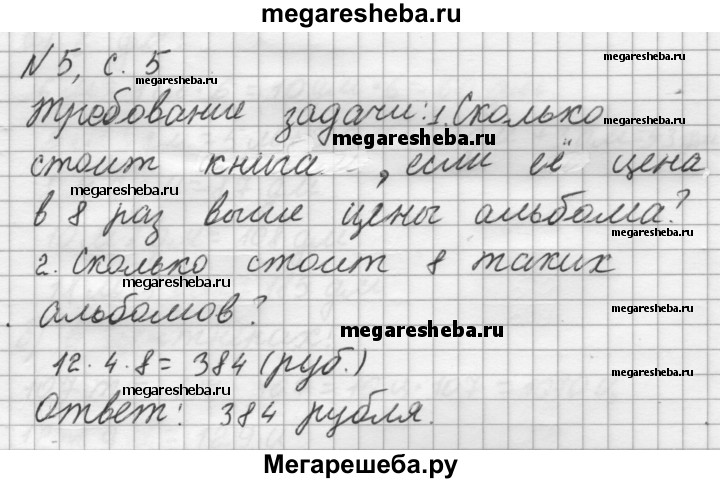 megaresheba.ru
N 5, с. 5
megaresheba.ru
megaresheba.ru
Требование задачи: 1. Сколько
megaresheba.ru
megaresheba.ru
стоит книга, если её цена
megaresheba.ru
megaresheba.ru
в 8 раз выше цены альбома?
megaresheba.ru
2. Сколько стоит 8 таких
megaresheba.ru
megaresheba.ru
альбомов?
megaresheba.ru
12·4·8 = 384 (руб.)
megaresheba.ru
megaresheba.ru
Ответ: 384 рубля.
megaresheba.ru
Мегарешеба.ру